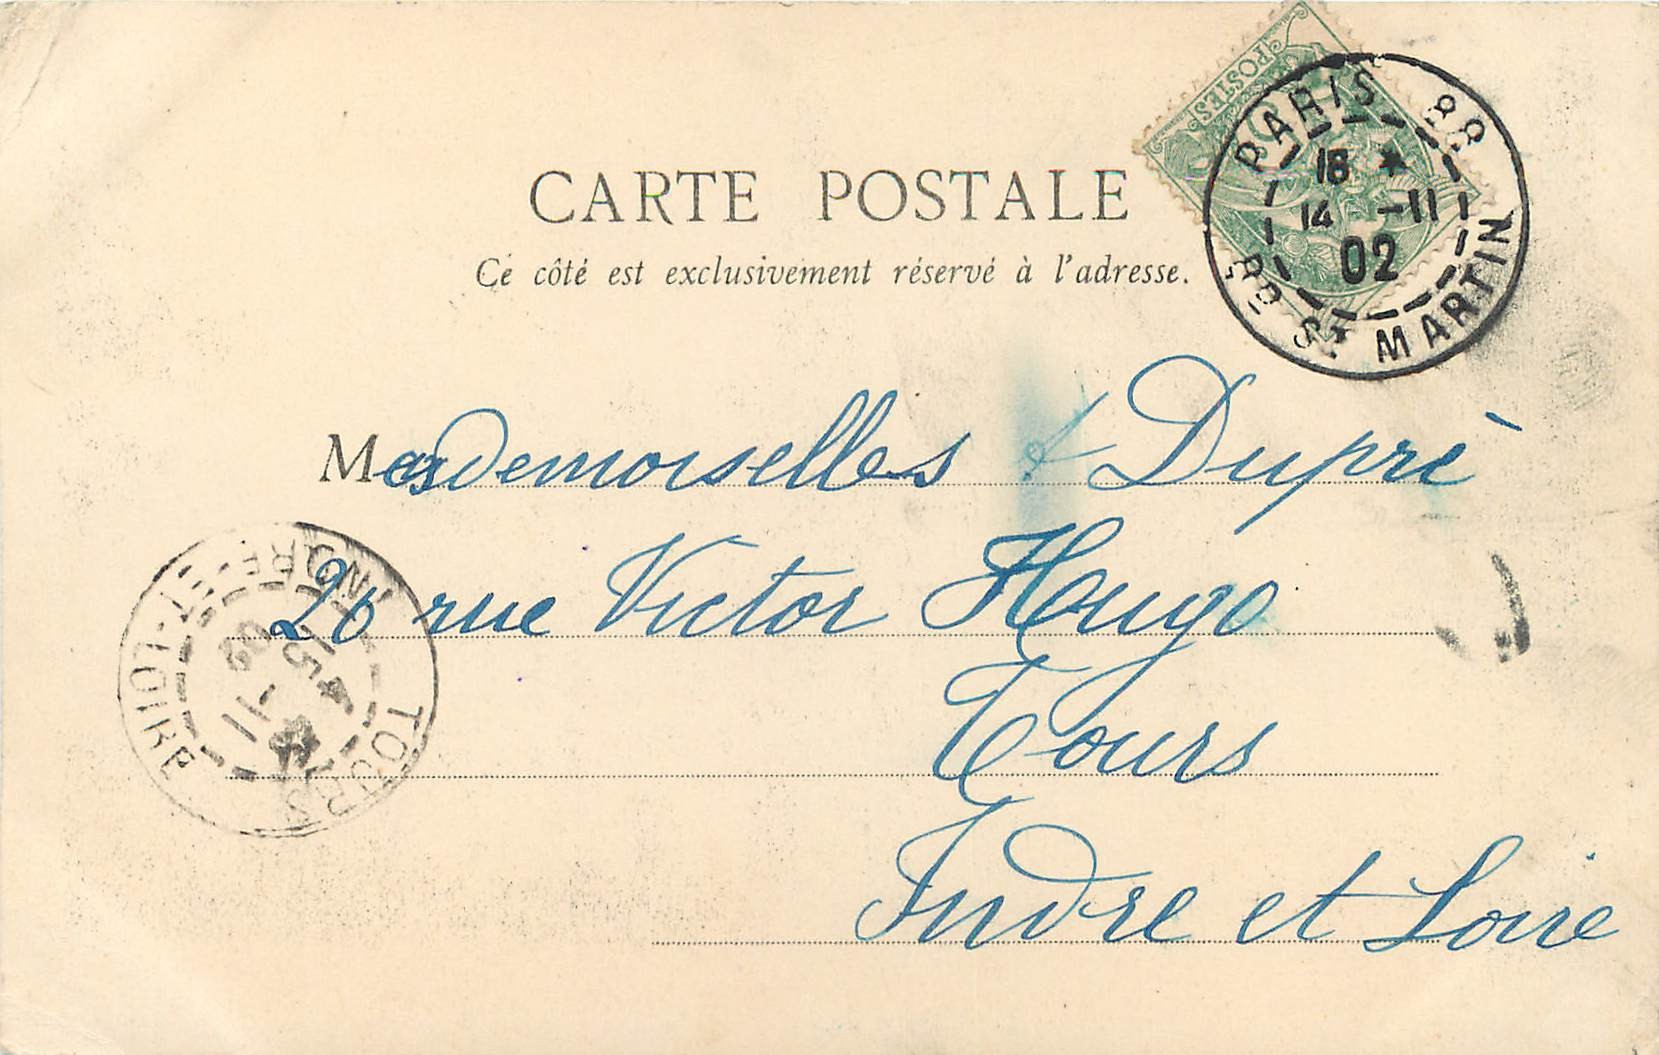 POSTES
PARIS 88
18 *
14 -11
02
Bd St MARTIN
CARTE POSTALE
Ce côté est exclusivement réservé à l'adresse.
Mesdemoiselles Dupré
20 rue Victor Hugo
Tours
Indre et Loire
TOURS
INDRE-ET-LOIRE
15 -11
02